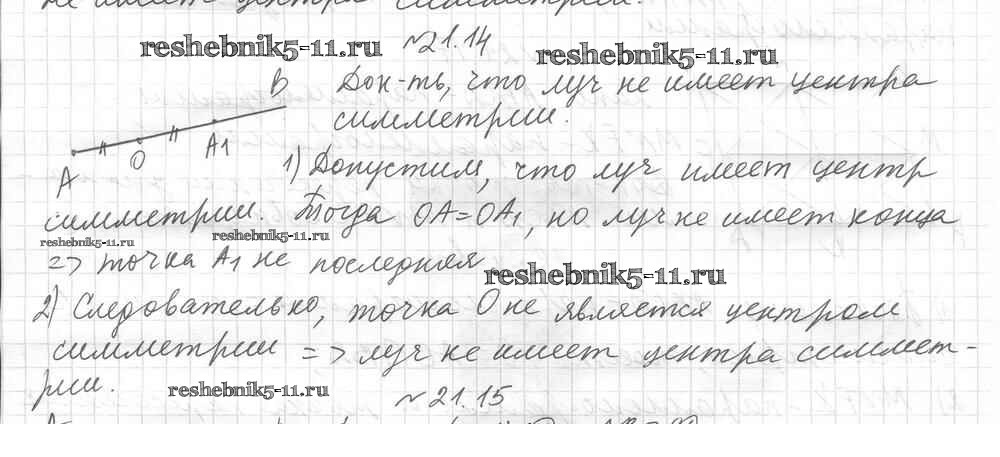 не имеет центра симметрии.
reshebnik5-11.ru №21.14 reshebnik5-11.ru
B Док-ть, что луч не имеет центра
симметрии.
A O A1
1) Допустим, что луч имеет центр
симметрии. Тогда OA=OA1, но луч не имеет конца
reshebnik5-11.ru reshebnik5-11.ru
=> точка A1 не последняя
reshebnik5-11.ru
2) Следовательно, точка O не является центром
симметрии => луч не имеет центра симмет-
рии.
reshebnik5-11.ru №21.15